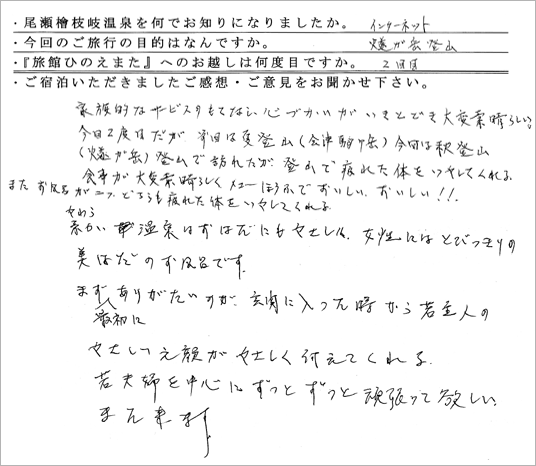 ・尾瀬檜枝岐温泉を何でお知りになりましたか。 インターネット
・今回のご旅行の目的はなんですか。 燧が岳登山
・『旅館ひのえまた』へのお越しは何度目ですか。 2回目
・ご宿泊いただきましたご感想・ご意見をお聞かせ下さい。
家族的なサービスのもてなし、心づかいがいきとどき大変素晴らしい。
今回2度目だが 前回は夏登山(会津駒ヶ岳)今回は秋登山
(燧が岳)登山で訪れたが 登山で疲れた体をいやしてくれる
食事が大変素晴らしく メニューほうふでおいしい、おいしい!!
また お風呂が二つ どちらも疲れた体をいやしてくれる
やわらかい 温泉はおはだにもやさしく、女性にはとびっきりの
美はだのお風呂です。
まず最初にありがたいのが、玄関に入った時から若主人の
やさしい笑顔がやさしく伝えてくれる
若夫婦を中心にずっとずっと頑張って欲しい。
また来ます